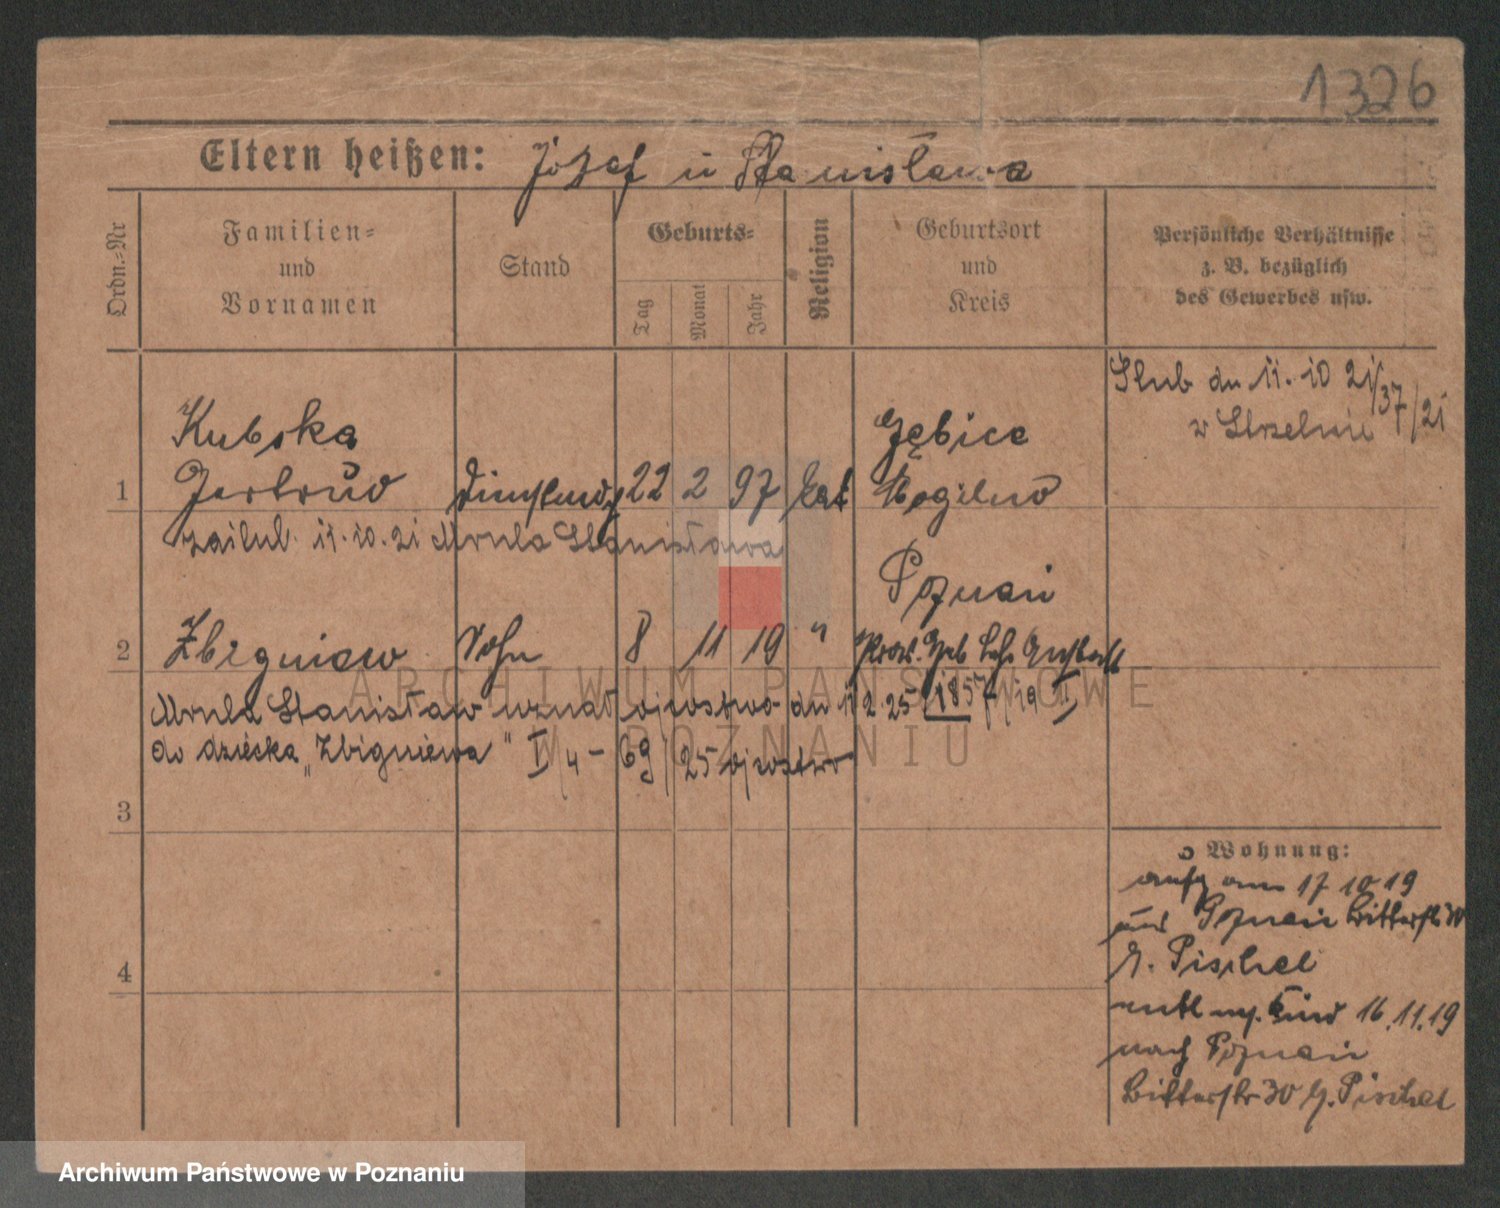 1326
Eltern heißen: Józef u Stanisława
Ordn.-Nr
Familien- und Vornamen
Stand
Geburts-
Tag
Monat
Jahr
Religion
Geburtsort und Kreis
Persönliche Verhältnisse z. B. bezüglich des Gewerbes usw.
Ślub dn 11. 10 21 37/21
w Strzelnie
Kubska Gębice
1 Gertrud 22 2 97 kat Mogilno
zaślub. 11. 10. 21 Mrula Stanisława
Poznań
2 Zbigniew Sohn 8 11 19 "
Mrula Stanisław uznał ojcostwo dn 11 2 25
do dziecka "Zbigniewa" I/4 - 69/25 ojcostwo
3
4
Wohnung:
am 17 10 19
aus Poznań Bitterstr 30
b. Pischel
entl m. Kind 16.11.19
nach Poznań
Bitterstr 30 b. Pischel
ARCHIWUM PAŃSTWOWE
W POZNANIU
Archiwum Państwowe w Poznaniu